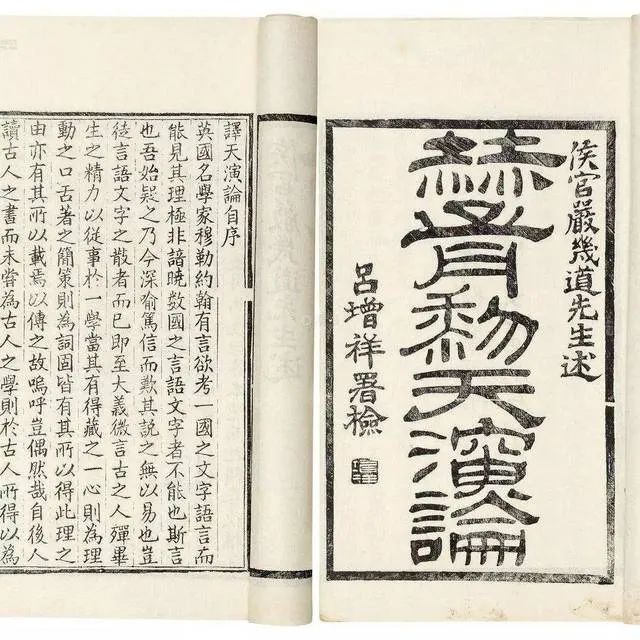 侯官嚴幾道先生述
赫胥黎天演論
呂增祥署檢
譯天演論自序
英國名學家穆勒約翰有言欲考一國之文字語言而
能見其理極非諳曉數國之言語文字者不能也斯言
也吾始疑之乃今深喻篤信而歎其說之無以易也豈
徒言語文字之散者而已即至大義微言古之人殫畢
生之精力以從事於一學當其有得藏之一心則為理
動之口舌著之簡策則為詞固皆有其所以得此理之
由亦有其所以載焉以傳之故嗚呼豈偶然哉自後人
讀古人之書而未嘗為古人之學則於古人所得以為